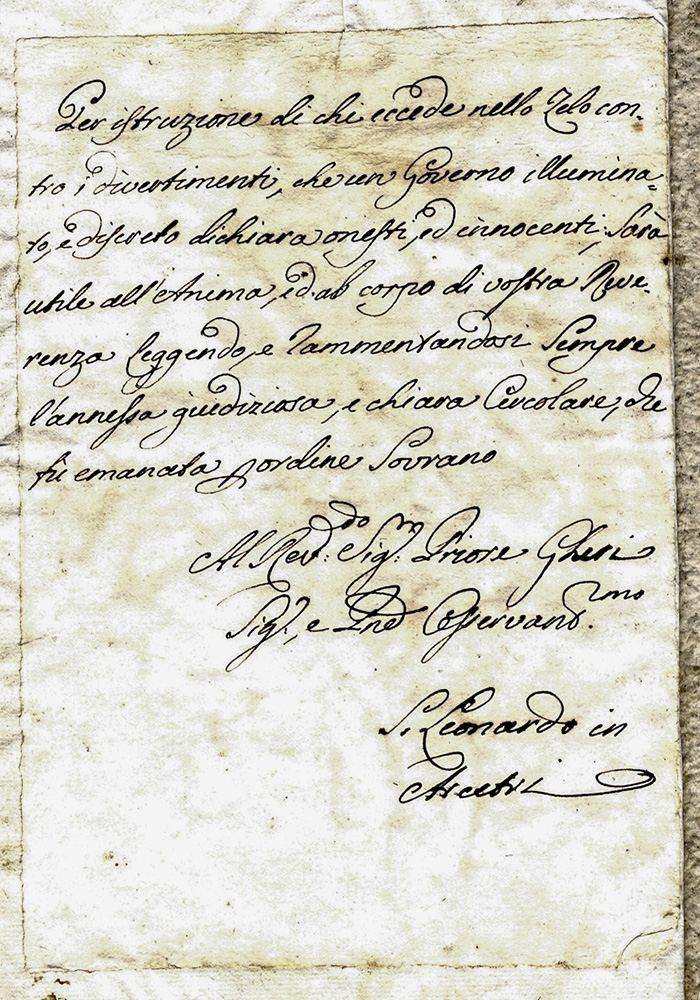 Per istruzione di chi eccede nello Zelo con-
tro i divertimenti, che un Governo illumina=
to, e discreto dichiara onesti, ed innocenti; Sarà
utile all'Anima, ed al corpo di vostra Reve-
renza leggendo, e rammentandosi Sempre
l'annessa giudiziosa, e chiara Circolare, che
fù emanata p ordine Sovrano
Al Rev:do Sig.r Priore Gheri
Sig.r, e Pne Osservand.mo
S. Leonardo in
Arcetri